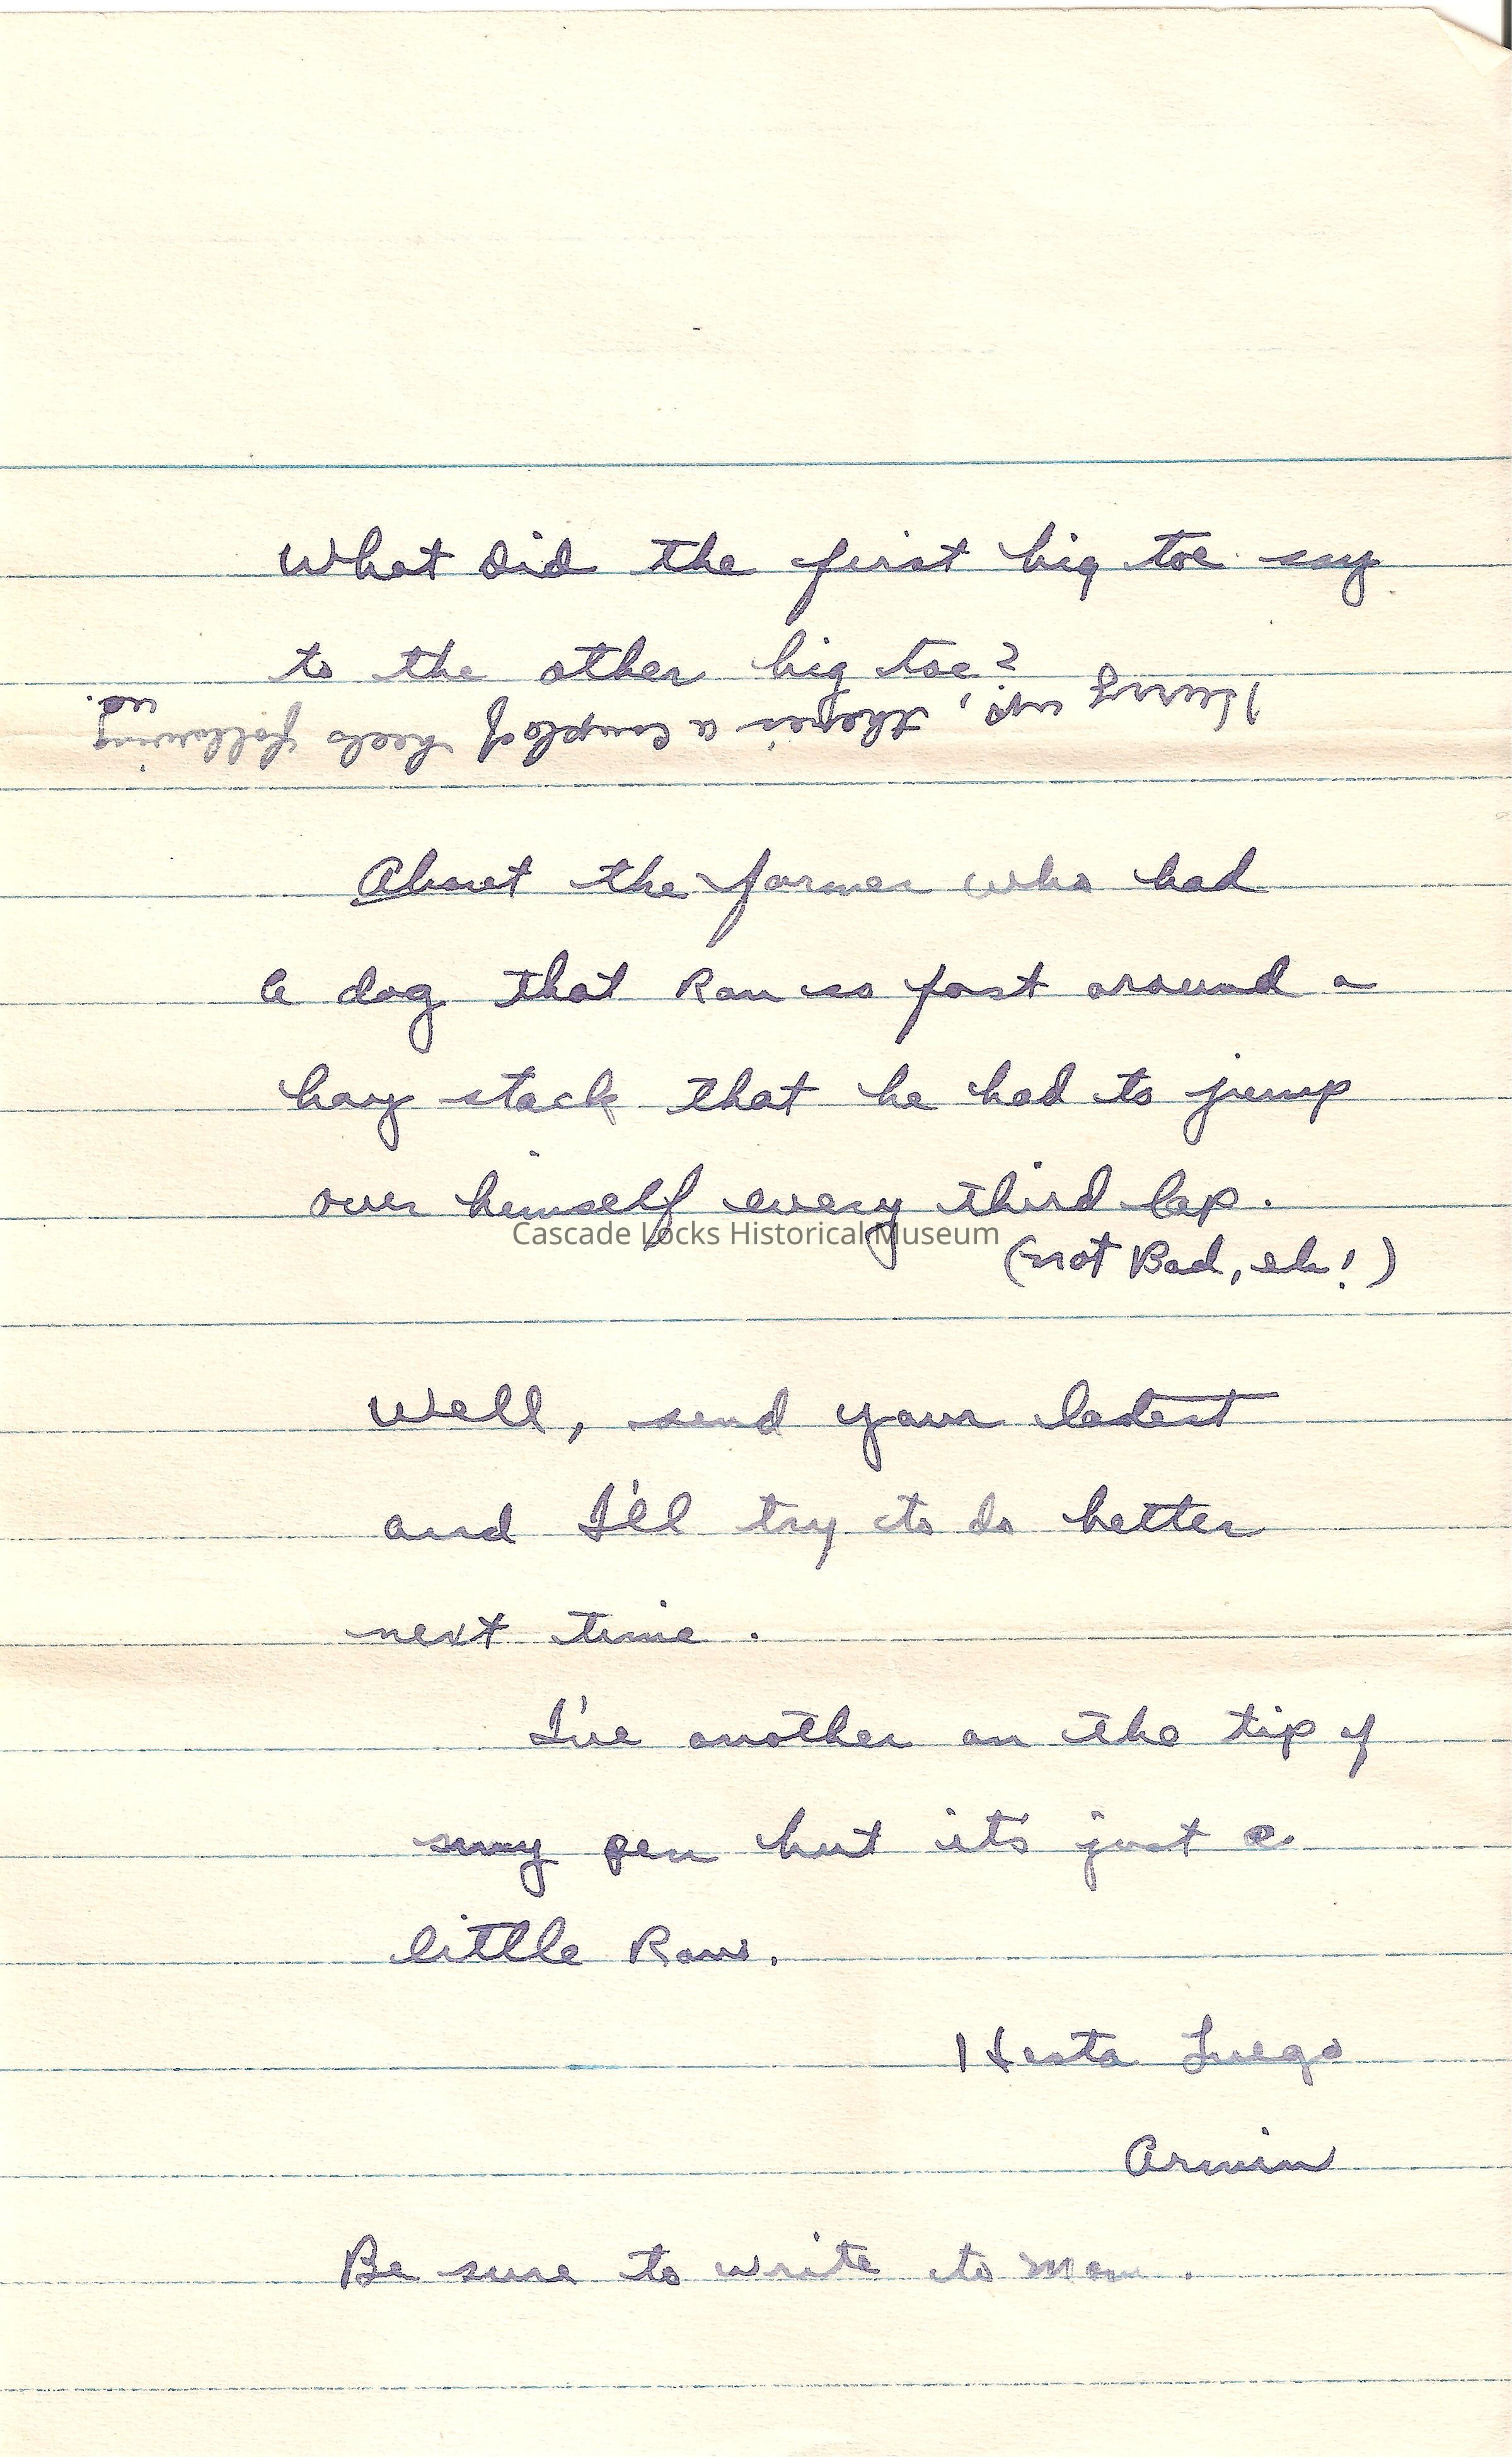 What did the first big toe say
to the other big toe?
Hurry up, there's a couple of heels following
us.
About the farmer who had
a dog that Ran so fast around a
hay stack that he had to jump
over himself every third lap.
Cascade Locks Historical Museum
(not Bad, eh!)
Well, send your latest
and I'll try to do better
next time.
I've another on the tip of
my pen but it's just a
little Raw.
Hasta Luego
Armin
Be sure to write to Mom.